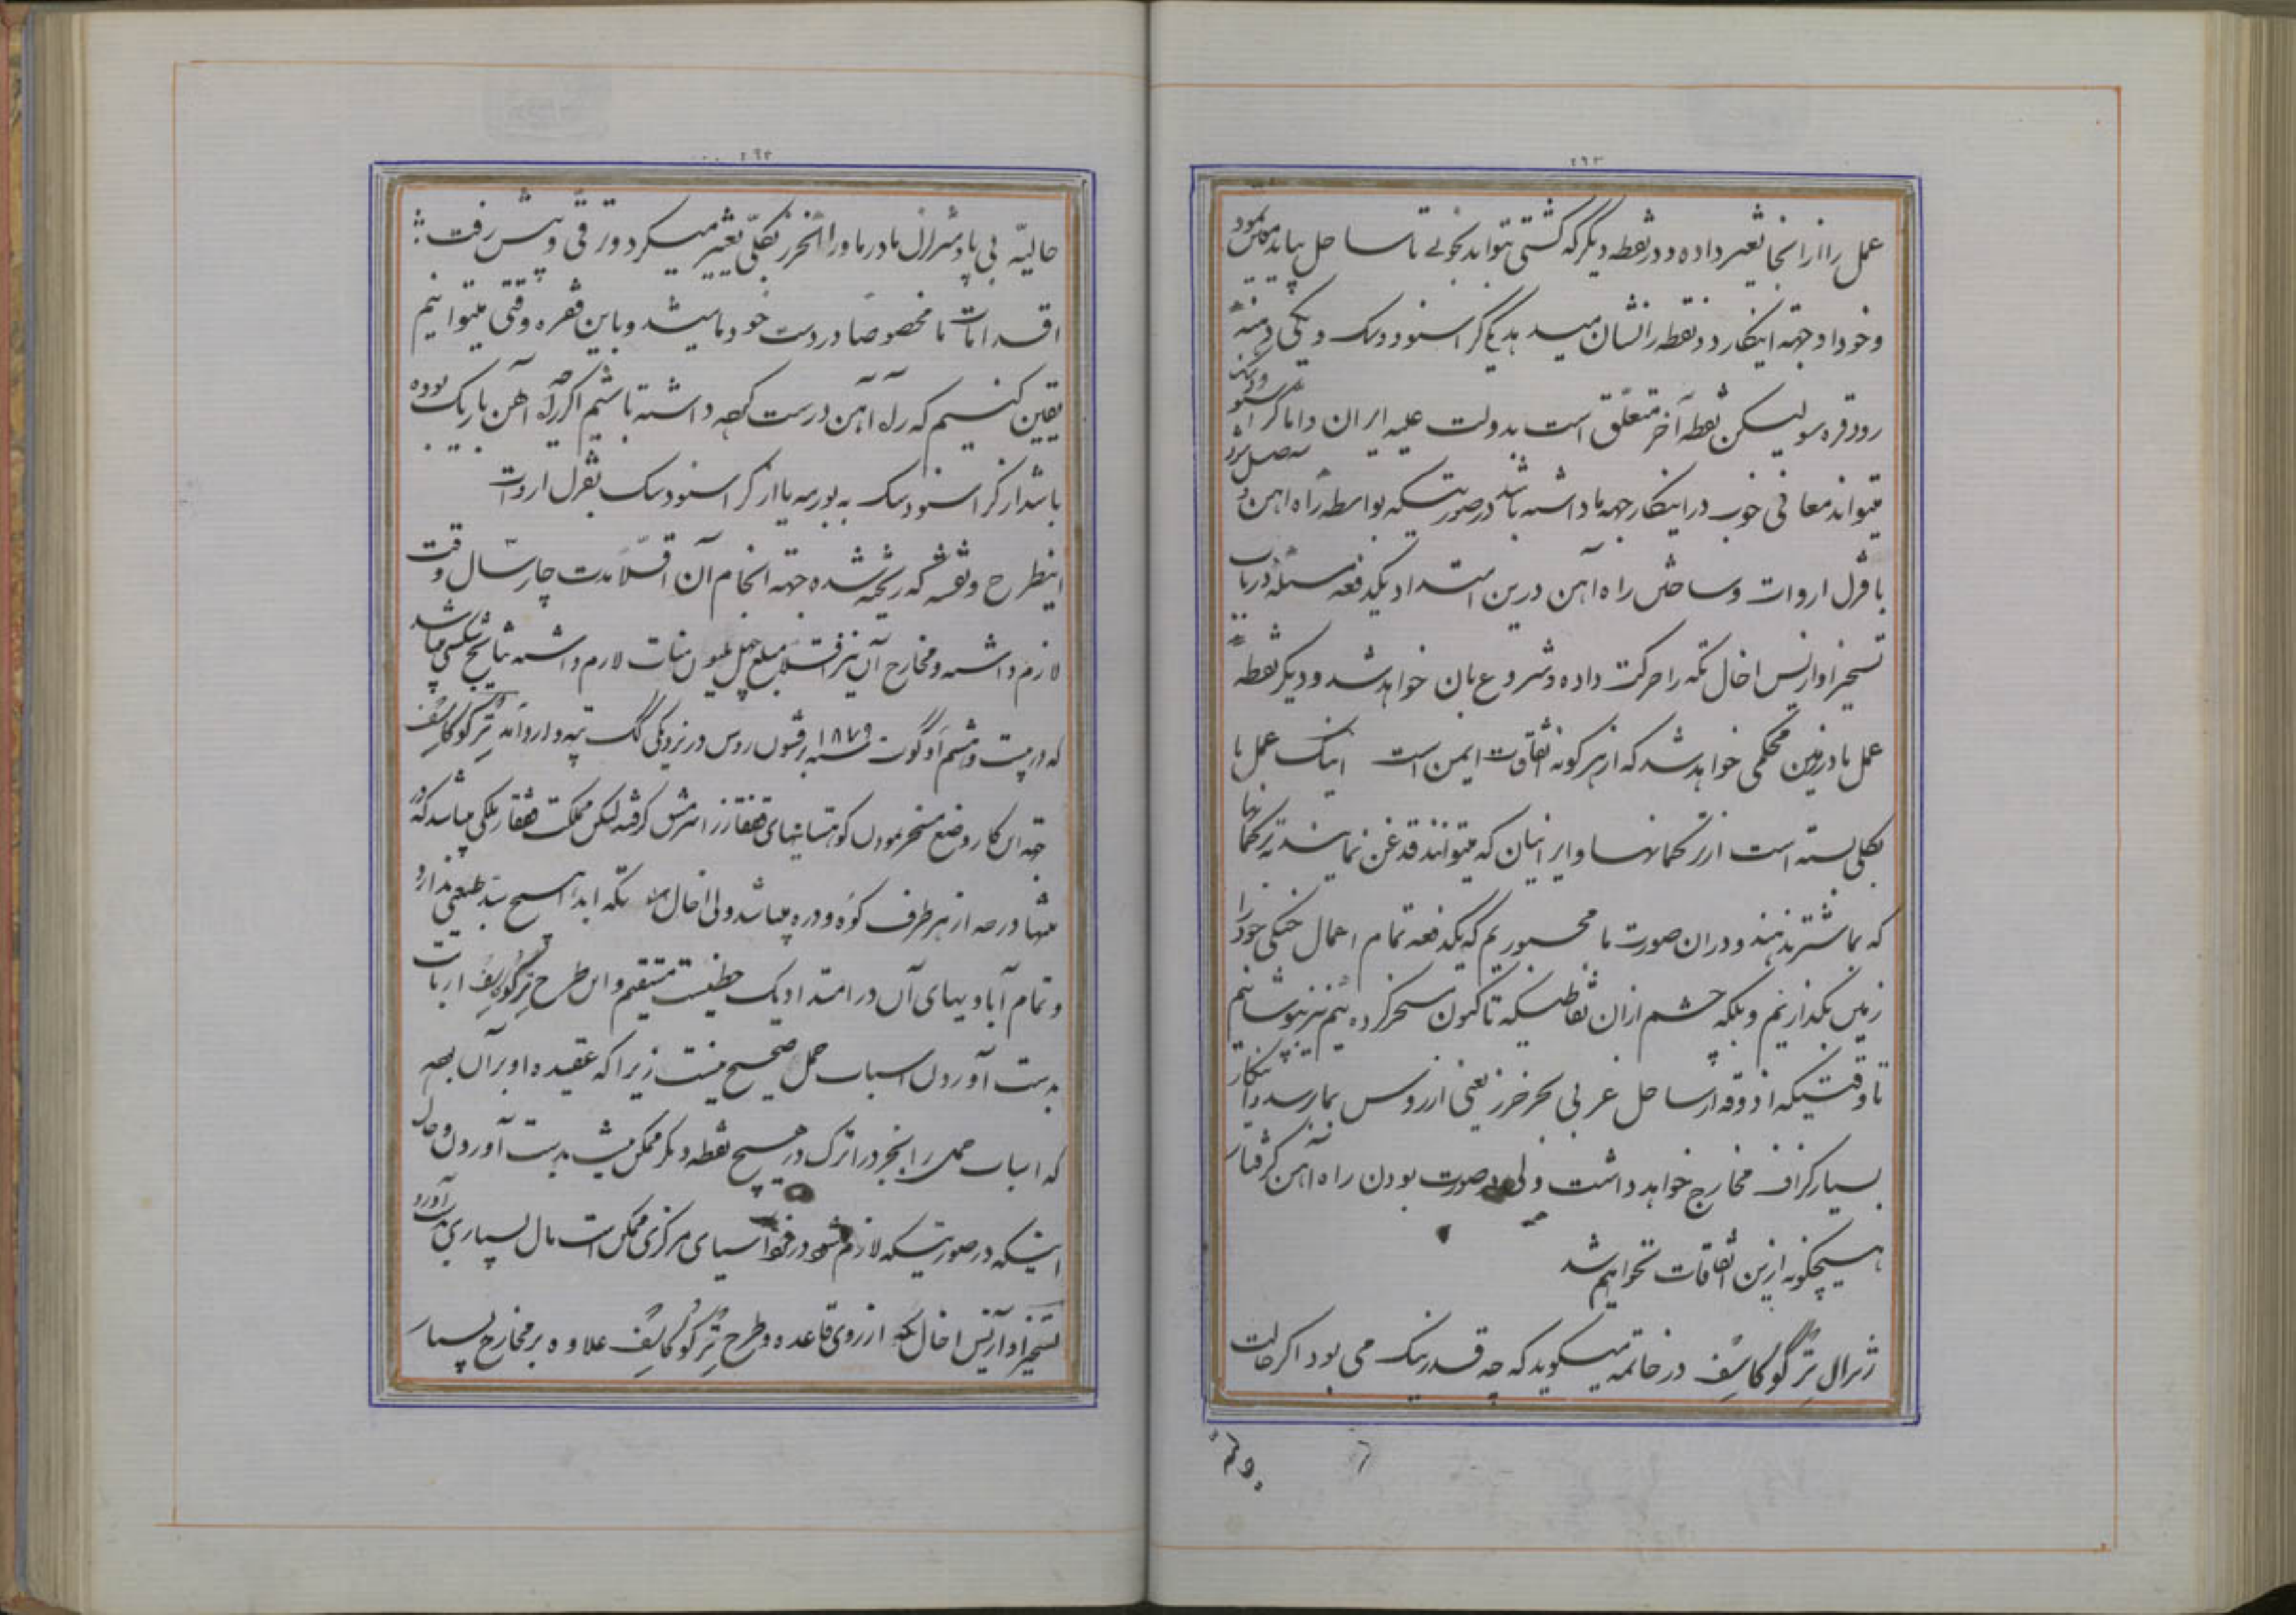 ۲۶۳
عمل را از انجا تغییر داده و در نقطه دیگر که کشتی بتواند بخوبی تا ساحل بیاید معین نمود
و خود او جهته اینکار دو نقطه را نشان میدهد یکی کراسنوودسک و یکی دهنه
رود قره سو لیکن نقطه آخر متعلق است بدولت علیه ایران و اما کراسنوودسک
میتواند معافی خوب در اینکار جهه ما داشته باشد در صورتیکه بواسطه راه اهن وصل شود
با قزل اروات و ساختن راه آهن درین امتداد یکدفعه مسئله در باب
تسخیر اوازیس اخال تکه را حرکت داده و شروع بان خواهد شد و دیگر نقطه
عمل ما در زمین محکمی خواهد شد که از هر گونه اتفاقات ایمن است اینک عمل ما
بکلی بسته است از ترکمانها و ایرانیان که میتوانند قدغن نمایند ترکمانها
که بما شتر ندهند و در ان صورت ما مجبوریم که یکدفعه تمام اعمال جنگی خود را
زمین بگذاریم و بلکه چشم از ان نقاطیکه تا کنون مسخر کرده ئیم نیز بپوشانیم
تا وقتیکه اذوقه از ساحل غربی بحر خزر یعنی از روس بما رسد و اینکار
بسیار گزاف مخارج خواهد داشت ولی در صورت بودن راه آهن گرفتار
هیچگونه ازین اتفاقات نخواهیم شد
ژنرال ترگوکاسف در خاتمه میگوید که چه قدر نیک می بود اگر حالت
۲۶۴
حالیه بی پا و سر ازل ما در ماوراء الخزر بکلی تغییر میکرد و ترقی و پیش رفت
اقدامات ما مخصوصا در دست خود ما میشد و باین فقره وقتی میتوانیم
یقین کنیم که راه آهن درست کرده داشته باشیم اگر چه راه آهن باریک بوده
باشد از کراسنودسک به بورمه یا از کراسنودسک بقزل اروات
اینطرح و نقشه که ریخته شده جهته انجام آن اقلا مدت چار سال وقت
لازم داشته و مخارج آن نیز اقلا مبلغ چهل ملیون منات لازم داشته نتایج شکستی میباشد
که در بیست و هشتم اوگوت ۱۸۷۹ بر قشون روس در نزدیکی گک تپه وارد آمد ترگوکاسف
جهته این کار وضع مسخر نمودن کوهستانیهای قفقاز را سرمشق گرفته لیکن مملکت قفقاز ملکی میباشد که در
منتها درجه از هر طرف کوه و دره میباشد ولی اخال تکه ابدا هیچ سد طبیعی ندارد
و تمام آبادیهای آن در امتداد یک خطیست مستقیم و این طرح ترگوکاسف از بابت
بدست آوردن اسباب حمل صحیح نیست زیرا که عقیده او بر آن بوده
که اسباب حمل را بجز در اترک در هیچ نقطه دیگر ممکن نیست بدست آوردن و حال
اینکه در صورتیکه لازم شود در خود آسیای مرکزی ممکن است مال بسیاری بدست آورد
تسخیر اوآزیس اخال تکه از روی قاعده و طرح ترگوکاسف علاوه بر مخارج بسیار